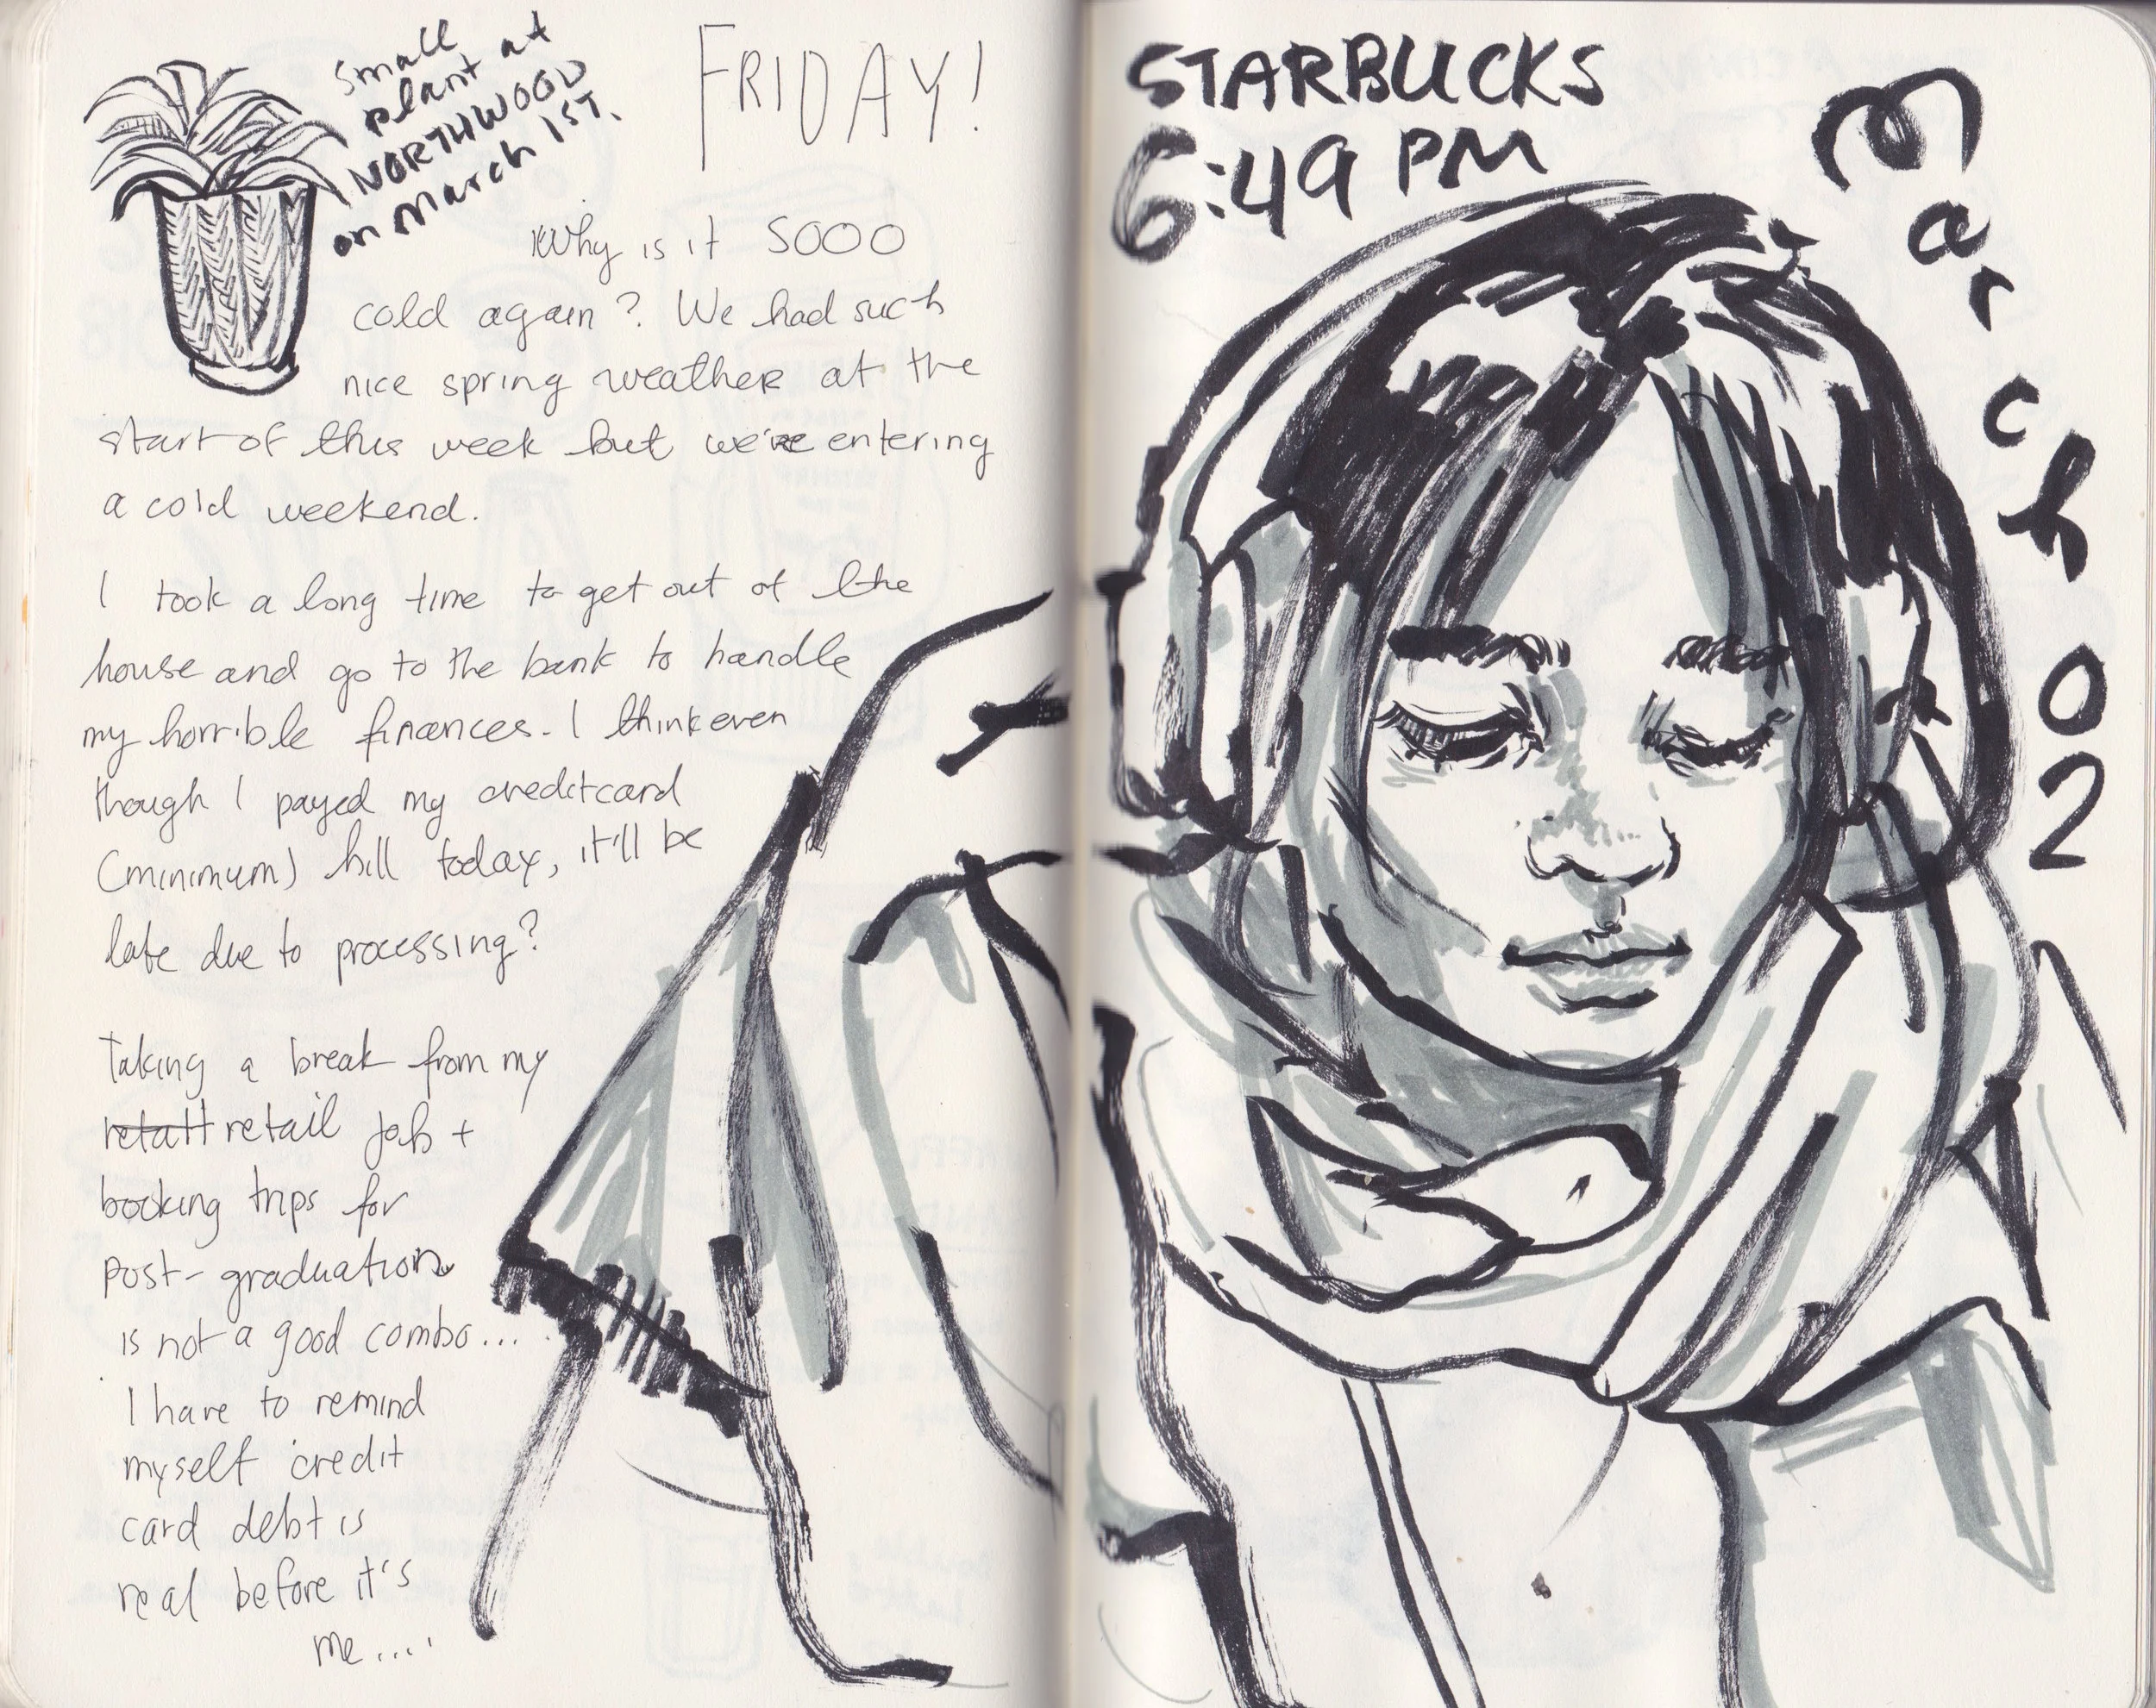 small
plant at
NORTHWOOD
on March 1ST.
FRIDAY!
Why is it SOOO
cold again? We had such
nice spring weather at the
start of this week but we're entering
a cold weekend.
I took a long time to get out of the
house and go to the bank to handle
my horrible finances. I think even
though I payed my creditcard
(minimum) bill today, it'll be
late due to processing?
Taking a break from my
retail job +
booking trips for
post-graduation
is not a good combo...
I have to remind
myself credit
card debt is
real before it's
me....
STARBUCKS
6:49 PM
March 02